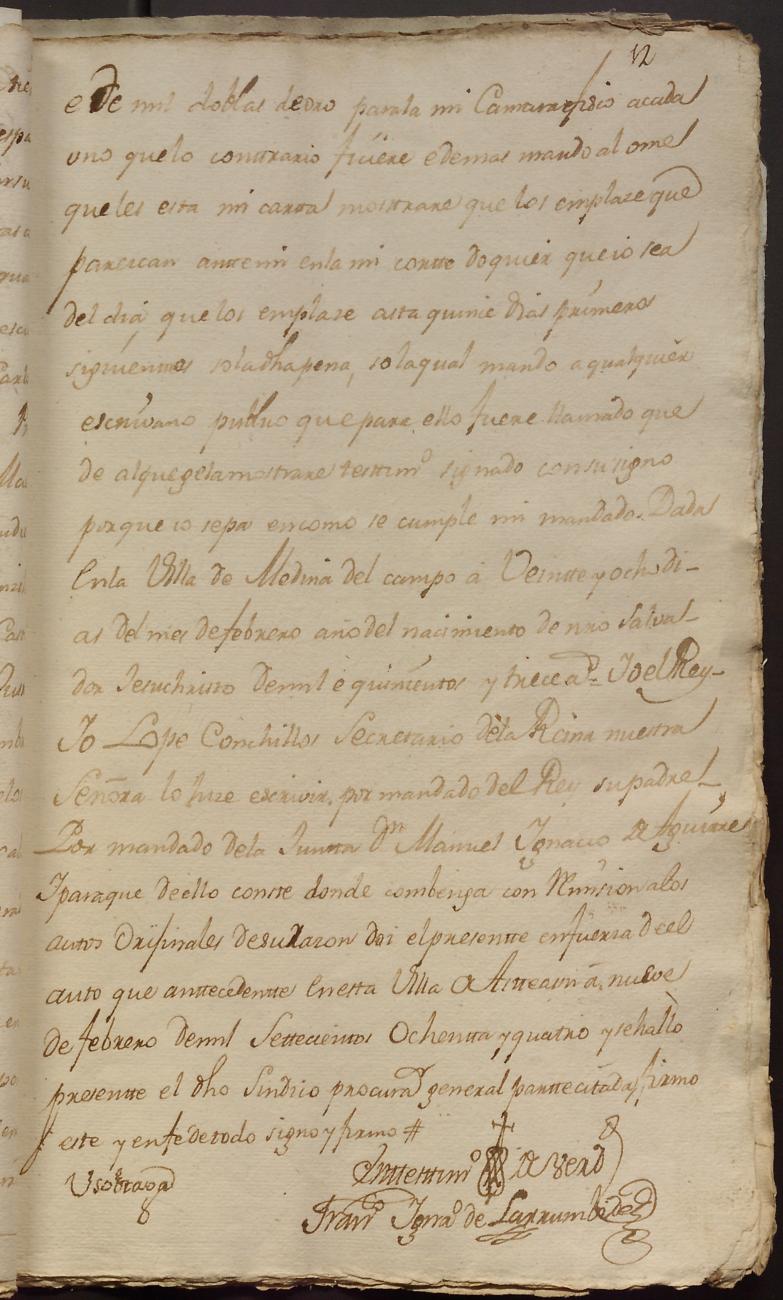 12
e de mil doblas de oro para la mi Camara e fisco a cada
uno que lo conttrario fuere e demas mando al ome
que les esta mi cartta mosttrare que los emplase que
parezcan antte mi en la mi cortte do quier que io sea
del dia que los emplase asta quinze dias primeros
siguienttes so la dha pena, so la qual mando a qualquier
escrivano publico que para ello fuere llamado que
de al que ge la mostrare testtimº signado con su signo
porque io sepa en como se cumple mi mandado. Dada
en la Villa de Medina del campo a Veintte y ocho di-
as del mes de febrero año del nacimiento de nro Salva-
dor Jesuchristo de mil e quinientos y trece as= Io el Rey-
Io Lope Conchillos Secretario de la Reina nuestra
Señora lo hize escrivir por mandado del Rey su padre-
Por mandado de la Juntta Dn Manuel Ignacio de Aguirre
I para que de ello conste donde combenga con Remision a los
autos Orijinales de su razon doi el presentte en fuerza de el
auto que anttecedentte en esta Villa de Artteaun a, nueve
de febrero de mil Settecientos Ochentta y quatro y se hallò
presentte el dho Sindico procurador general partte cittada, firmo
este y en fe de todo signo y firmo #
En testtimº de verd
Franº Ignº de Larrumbide